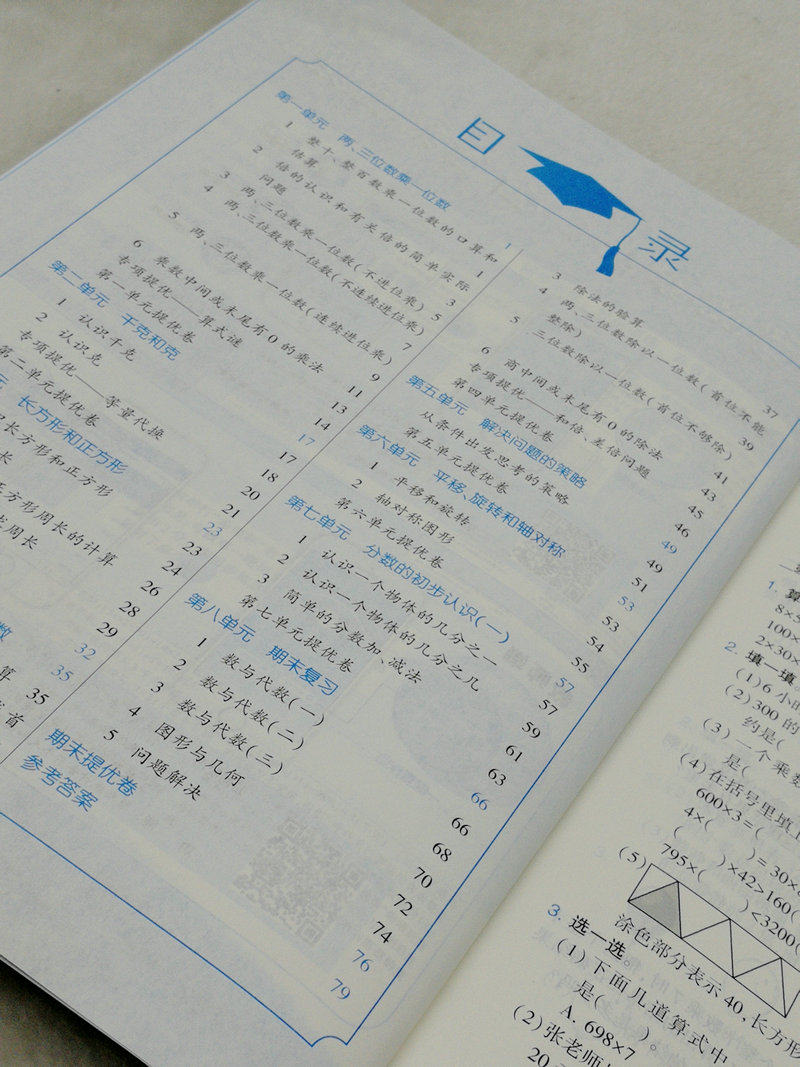 目 录
第一单元 两、三位数乘一位数 1
1 整十、整百数乘一位数的口算和
估算 1
2 倍的认识和有关倍的简单实际
问题 3
3 两、三位数乘一位数(不进位乘) 5
4 两、三位数乘一位数(不连续进位乘)
7
5 两、三位数乘一位数(连续进位乘)
9
6 乘数中间或末尾有0的乘法 11
专项提优——算式谜 13
第一单元提优卷 14
第二单元 千克和克 17
1 认识千克 17
2 认识克 18
专项提优——等量代换 20
第二单元提优卷 21
元 长方形和正方形 23
长方形和正方形 23
长 24
方形周长的计算 26
周长 28
29
数 32
35
算 35
首
3 除法的验算 37
4 两、三位数除以一位数(首位不能
整除) 39
5 三位数除以一位数(首位不够除)
41
6 商中间或末尾有0的除法 43
专项提优——和倍、差倍问题 45
第四单元提优卷 46
第五单元 解决问题的策略 49
从条件出发思考的策略 49
第五单元提优卷 51
第六单元 平移、旋转和轴对称 53
1 平移和旋转 53
2 轴对称图形 54
第六单元提优卷 55
第七单元 分数的初步认识(一) 57
1 认识一个物体的几分之一 57
2 认识一个物体的几分之几 59
3 简单的分数加、减法 61
第七单元提优卷 63
第八单元 期末复习 66
1 数与代数(一) 66
2 数与代数(二) 68
3 数与代数(三) 70
4 图形与几何 72
5 问题解决 74
期末提优卷 76
参考答案 79
1. 算
8×5
100×
2×30×
2. 填一填。
(1)6小时
(2)300的
约是(
(3)一个乘数
是(
(4)在括号里填上
600×3=(
4×( )=30×
( )×42>160(
795×( )<3200(
(5)
涂色部分表示40,长方形
3. 选一选。
(1)下面几道算式中
是( )。
A. 698×7
(2)张老师
20